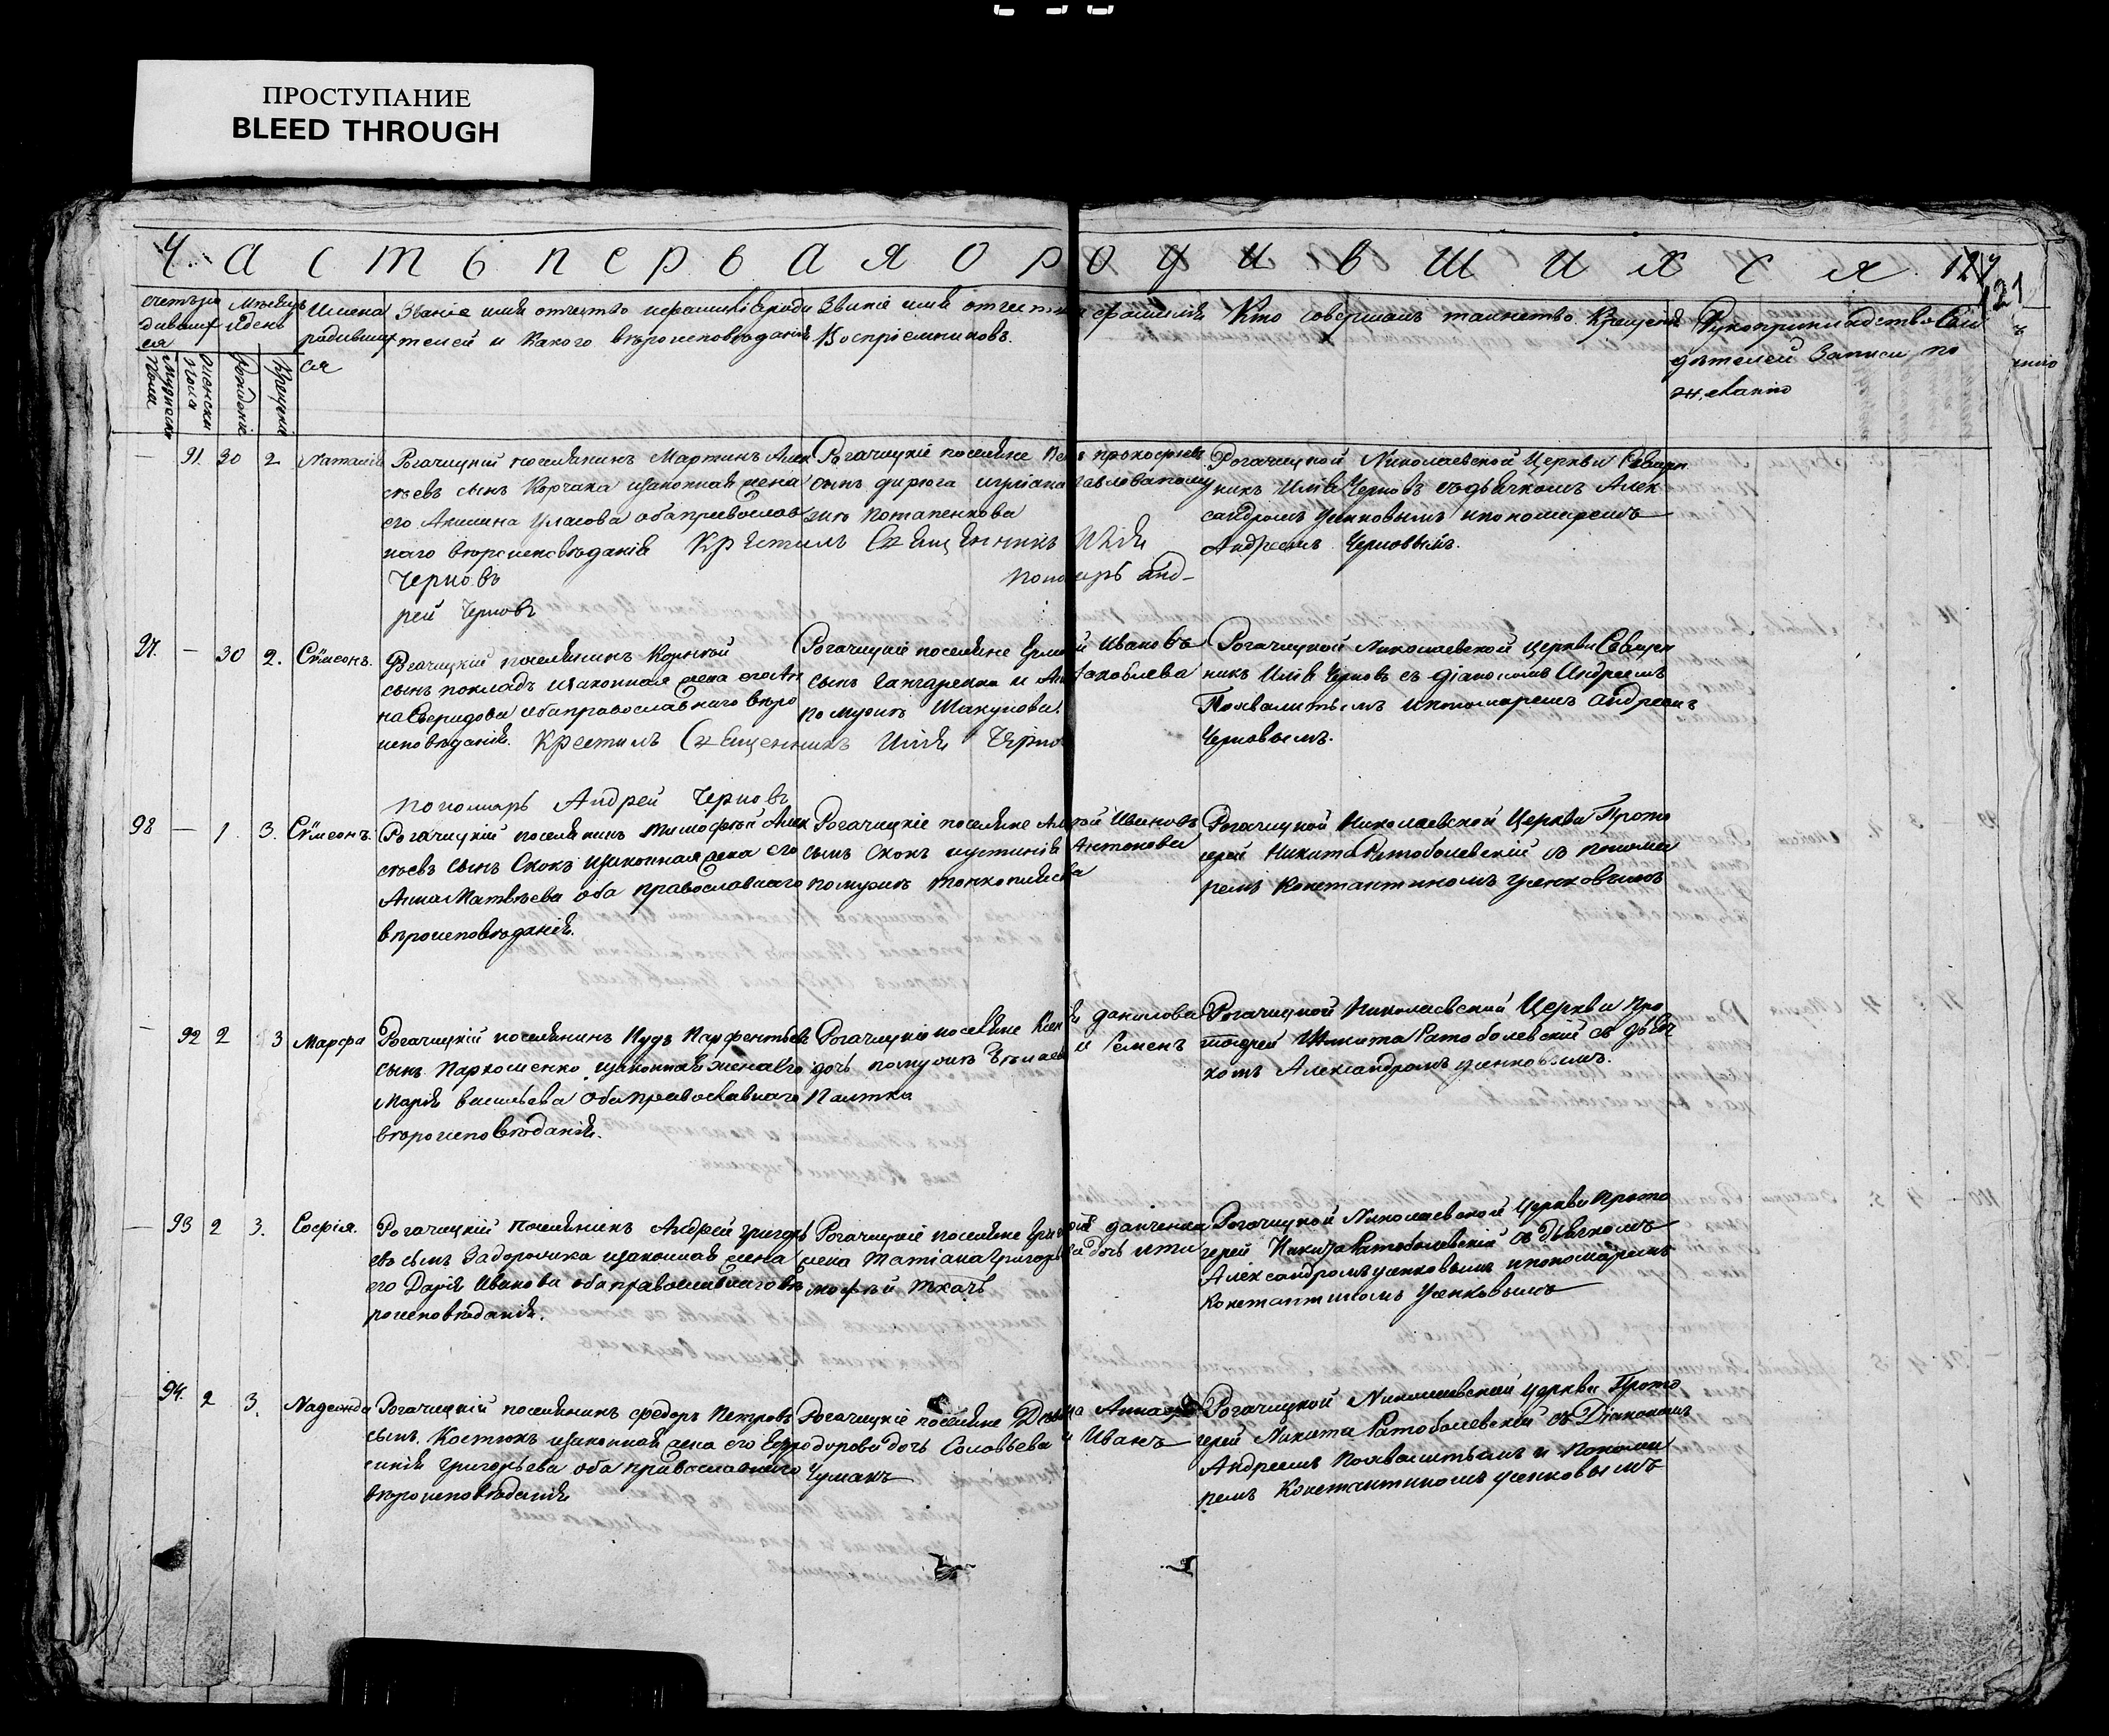 ПРОСТУПАНИЕ
BLEED THROUGH
Часть перваяородившихся 127
121
счетъро
дившиx
ся
Мѣсяцъ
идень
Имена
родивших
ся
Званіе имя отчество ифамилія роди
телей и какого вѣроисповѣданія
Званіе имя отчество ифамилія
Воспріемниковъ.
Кто совершалъ таинство Крещенія
Рукоприкладство Сви
дѣтелей записи по
желанію
мужеска
Пола
Женска
Пола
Рожденія
Крещенія
— 91. 30 2 Наталія
Рогачицкій поселянинъ Мартинъ Алек
сѣевъ сынъ Корчака изаконная жена
его Акилина Власова обаправослав
наго вѣроисповѣданія Крестилъ Священникъ Илія
Черновъ Пономарь Анд-
рей Черновъ
Рогачицкіе поселяне прокофіевъ
сынъ дирюга
Потапенкова
Рогачицкой Николаевской Церкви Священ
никъ Илія Черновъ съдьячкомъ Алек
сандромъ Уенковымъ ипономаремъ
Андреемъ Черновымъ.
97. — 30 2. Сѵмеонъ.
Рогачицкій поселянинъ Корнѣй
сынъ покладъ изаконная жена его Ан
на Свиридова обаправославнаго вѣро
исповѣданія. Крестилъ Священникъ Илія Черно
Пономарь Андрей Черновъ
Рогачицкіе поселяне Ивановъ
сынъ Ганчаренко и Яковлева
помужѣ Шакунова.
Рогачицкой Николаевской Церкви Священ
никъ Илія Черновъ съ діакономъ Андреемъ
Похвалитымъ ипономаремъ Андреемъ
Черновымъ.
98 — 1. 3. Сѵмеонъ.
Рогачицкій поселянинъ Тимофѣй Алек
сѣевъ сынъ Скокъ изаконная жена его
Анна Матвѣева оба православнаго
вѣроисповѣданія.
Рогачицкіе поселяне Ивановъ
сынъ Скокъ иустинія Антонова
помужѣ
Рогачицкой Николаевской Церкви Прото
іерей Никита Ратоболевскій съ понома
ремъ Константиномъ Уенковымъ
— 92 2 3 Марфа
Рогачицкій поселянинъ Нудъ Парфентьевъ
сынъ Пархоменко изаконная жена его
Марія Васильева обаправославнаго
вѣроисповѣданія.
Рогачицкіе поселяне данилова
дочь помужѣ и Семенъ
Палтка
Рогачицкой Николаевской Церкви Про
тоіерей Никита Ратоболевскій съ дьяч
комъ Александромъ Уенковымъ.
— 93 2 3. Софія.
Рогачицкій поселянинъ Андрей Григорь
евъ сынъ Задорожка изаконная жена
его Дарія Иванова обаправославнаго вѣ
роисповѣданія.
Рогачицкіе поселяне данченка
жена Татіана Григорьева дочь ити
мофѣй Ткачъ
Рогачицкой Николаевской Церкви Прото
іерей Никита Ратоболевскій съ Дьячкомъ
Александромъ Уенковымъ ипономаремъ
Константиномъ Уенковымъ
94. 2 3. Надежда
Рогачицкій поселянинъ Федоръ Петровъ
сынъ Костюкъ изаконная жена его Евфро
синія Григорьева оба православнаго
вѣроисповѣданія
Рогачицкіе поселяне Дѣвица Анна Фе
дорова дочь Соловьева и Иванъ
Чумакъ
Рогачицкой Николаевской Церкви Прото
іерей Никита Ратоболевскій съ Діакономъ
Андреемъ Похвалитымъ и Понома
ремъ Константиномъ Уенковымъ